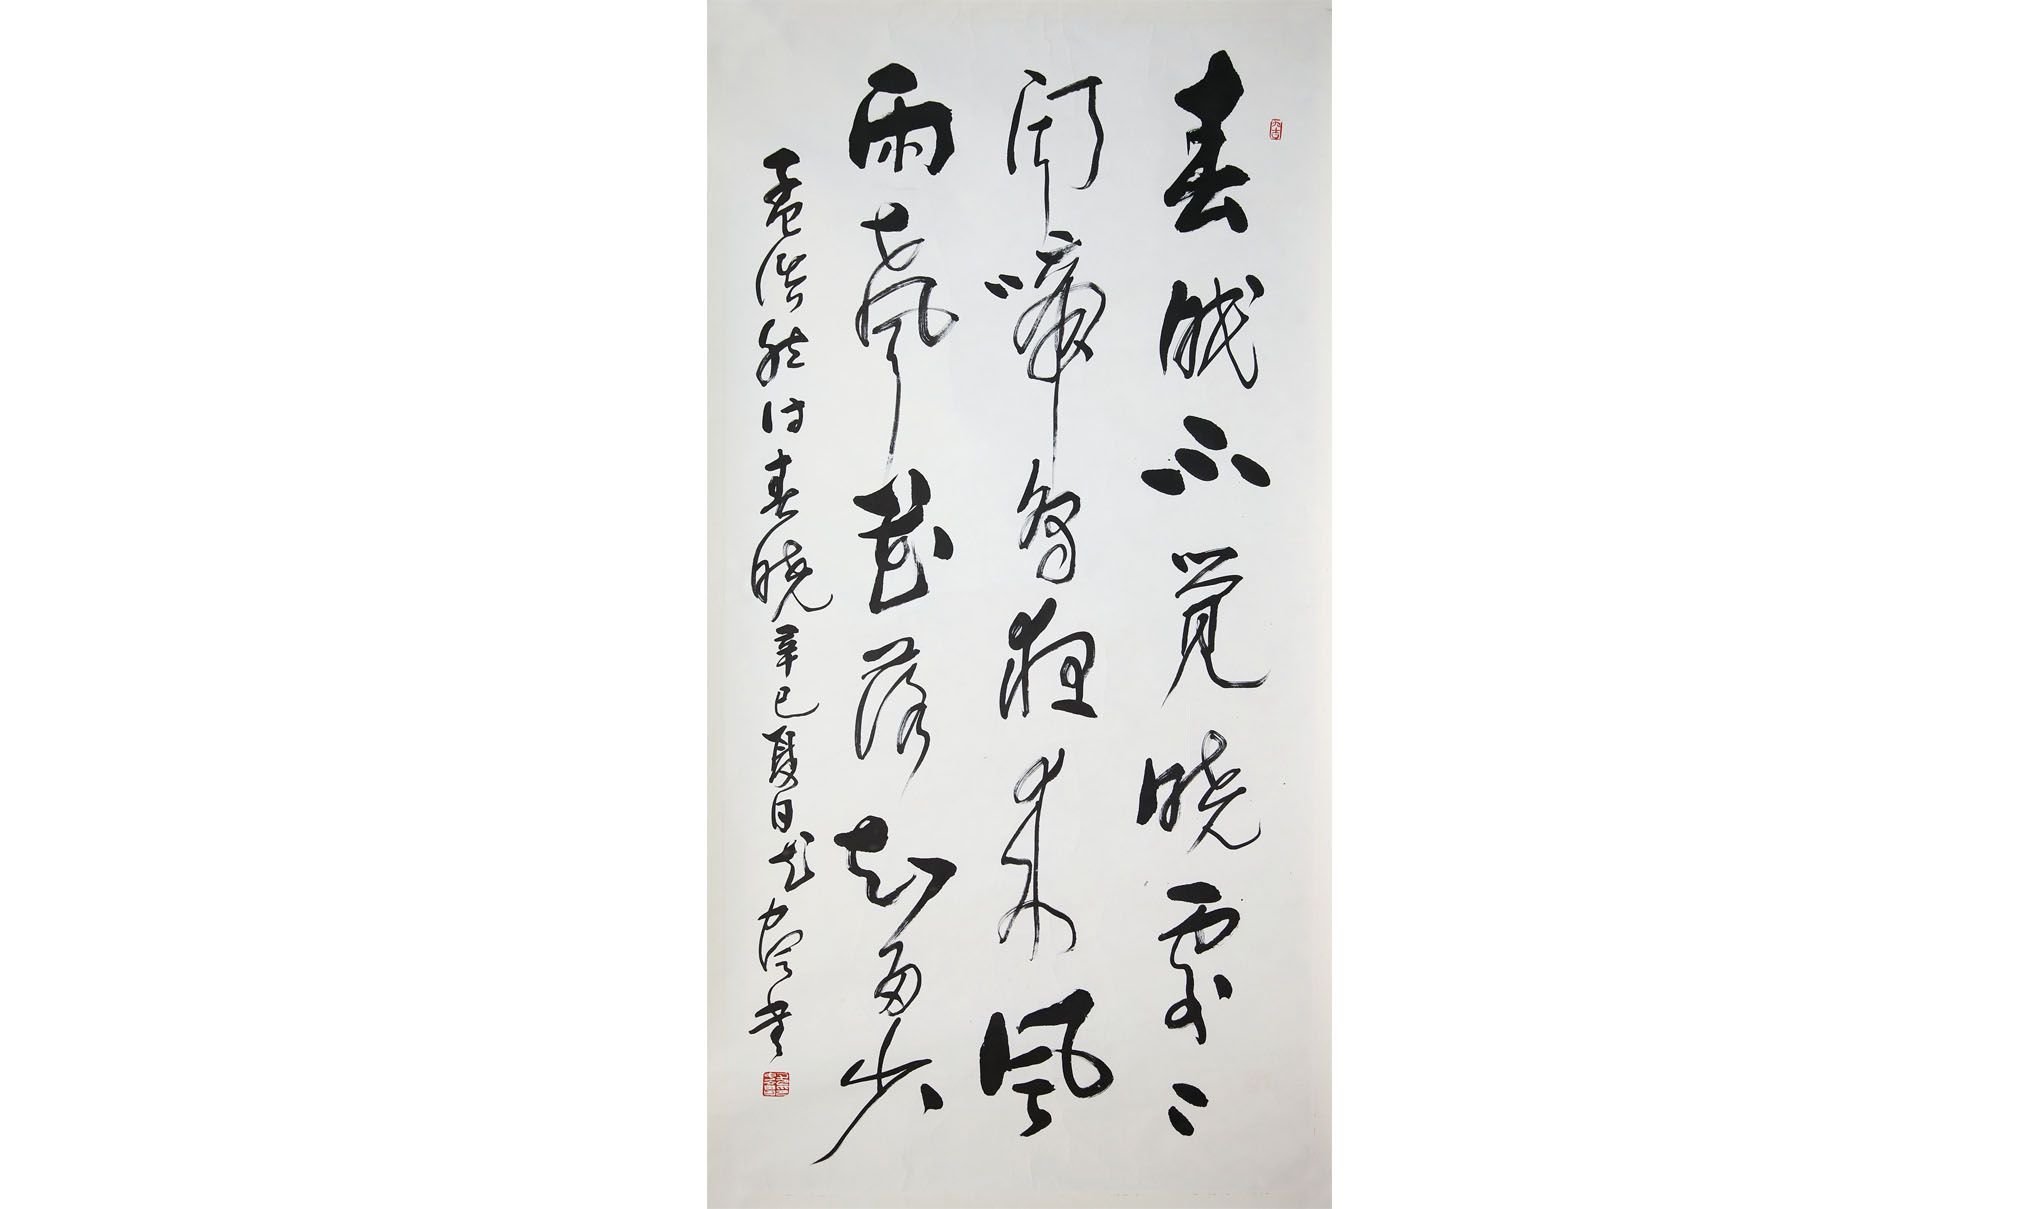 春眠不觉晓處々
闻啼鸟夜来风
雨聲花落知多少
孟浩然诗春晓辛巳夏日书